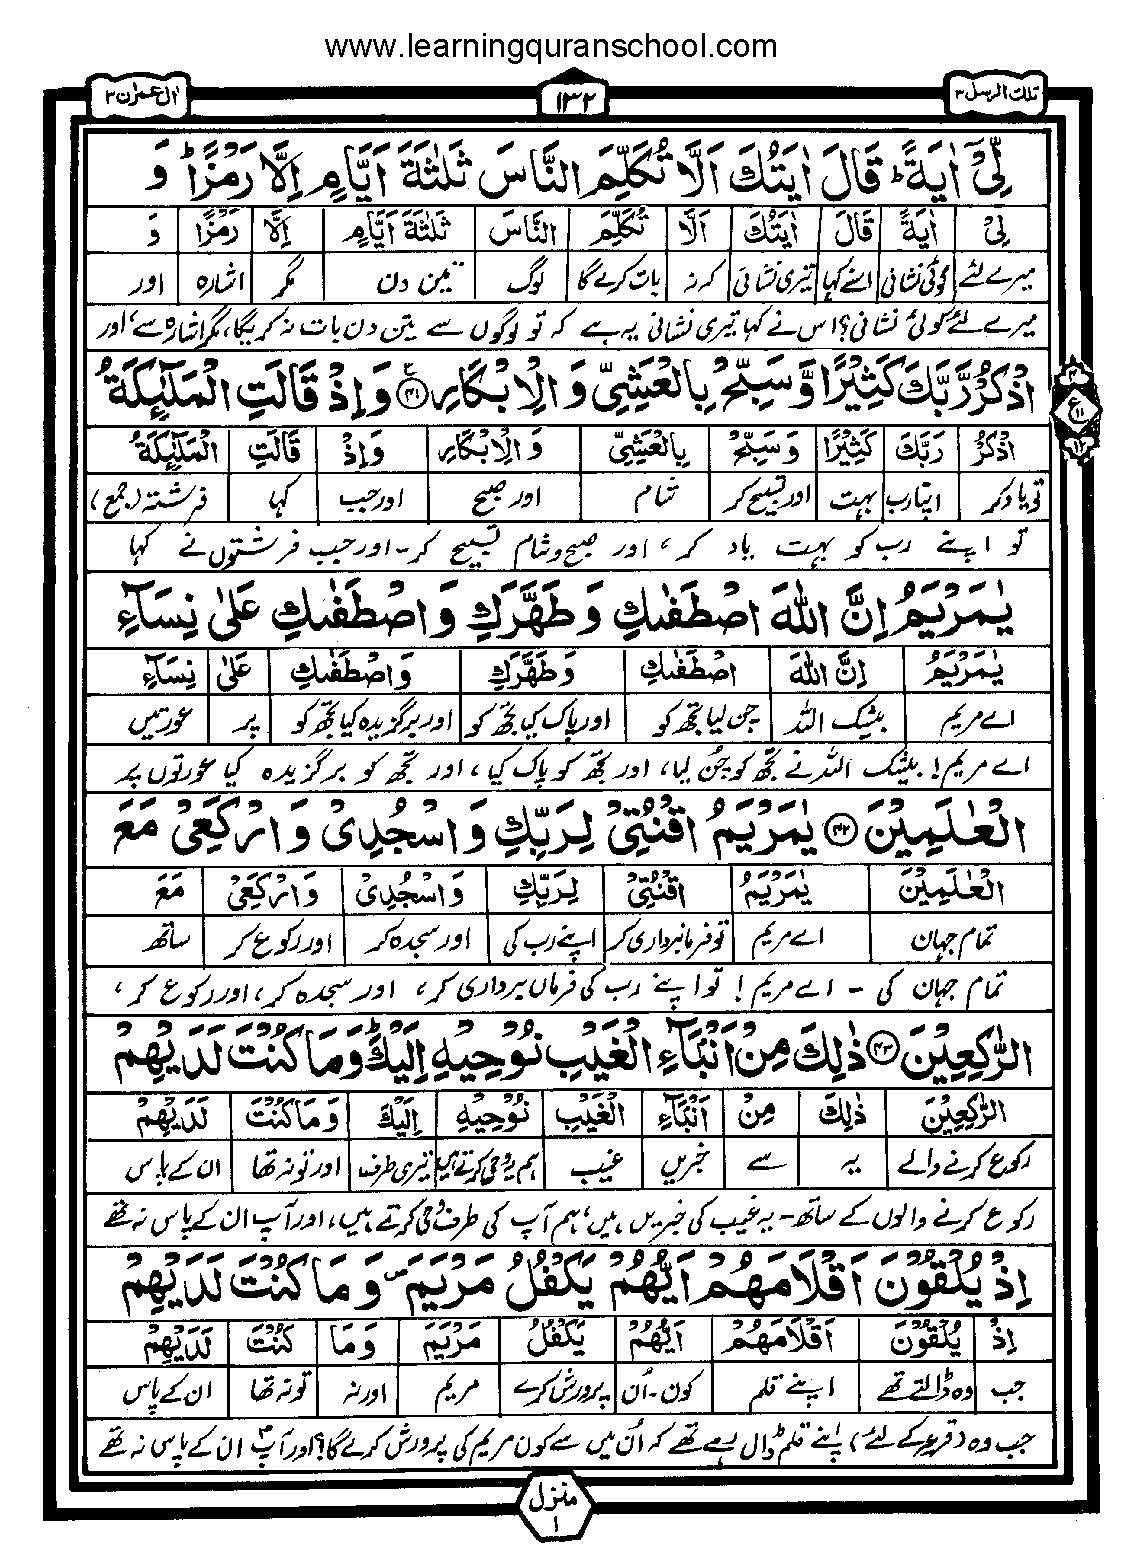 www.learningquranschool.com
تلك الرسل ۳ ۱۳۲ اٰل عمرٰن ۳
لِّیْۤ اٰیَةً ؕ قَالَ اٰیَتُكَ اَلَّا تُكَلِّمَ النَّاسَ ثَلٰثَةَ اَیَّامٍ اِلَّا رَمْزًا ؕ وَ
لِّیْ اٰیَةً قَالَ اٰیَتُكَ اَلَّا تُكَلِّمَ النَّاسَ ثَلٰثَةَ اَیَّامٍ اِلَّا رَمْزًا وَ
میرے لئے کوئی نشانی اسنے کہا تیری نشانی کہ نہ بات کرے گا لوگ تین دن مگر اشارہ اور
میرے لئے کوئی نشانی؟ اس نے کہا تیری نشانی یہ ہے کہ تو لوگوں سے تین دن بات نہ کریگا، مگر اشارہ سے، اور
اذْكُرْ رَّبَّكَ كَثِیْرًا وَّ سَبِّحْ بِالْعَشِیِّ وَ الْاِبْكَارِ ۴۱ وَ اِذْ قَالَتِ الْمَلٰٓئِكَةُ
۴ ع ۱۱ ۱۲
اذْكُرْ رَبَّكَ كَثِیْرًا وَ سَبِّحْ بِالْعَشِیِّ وَ الْاِبْكَارِ وَ اِذْ قَالَتِ الْمَلٰٓئِكَةُ
تو یاد کر اپنا رب بہت اور تسبیح کر شام اور صبح اور جب کہا فرشتہ (جمع)
تو اپنے رب کو بہت یاد کر، اور صبح و شام تسبیح کر۔ اور جب فرشتوں نے کہا
یٰمَرْیَمُ اِنَّ اللّٰهَ اصْطَفٰىكِ وَ طَهَّرَكِ وَ اصْطَفٰىكِ عَلٰى نِسَآءِ
یٰمَرْیَمُ اِنَّ اللّٰهَ اصْطَفٰىكِ وَ طَهَّرَكِ وَ اصْطَفٰىكِ عَلٰى نِسَآءِ
اے مریم بیشک اللہ چن لیا تجھ کو اور پاک کیا تجھ کو اور برگزیدہ کیا تجھ کو پر عورتیں
اے مریم! بیشک اللہ نے تجھ کو چُن لیا، اور تجھ کو پاک کیا، اور تجھ کو برگزیدہ کیا عورتوں پر
الْعٰلَمِیْنَ ۴۲ یٰمَرْیَمُ اقْنُتِیْ لِرَبِّكِ وَ اسْجُدِیْ وَ ارْكَعِیْ مَعَ
الْعٰلَمِیْنَ یٰمَرْیَمُ اقْنُتِیْ لِرَبِّكِ وَ اسْجُدِیْ وَ ارْكَعِیْ مَعَ
تمام جہان اے مریم تو فرمانبرداری کر اپنے رب کی اور سجدہ کر اور رکوع کر ساتھ
تمام جہان کی ۔ اے مریم! تو اپنے رب کی فرماں برداری کر، اور سجدہ کر، اور رکوع کر،
الرّٰكِعِیْنَ ۴۳ ذٰلِكَ مِنْ اَنْۢبَآءِ الْغَیْبِ نُوْحِیْهِ اِلَیْكَ ؕ وَ مَا كُنْتَ لَدَیْهِمْ
الرّٰكِعِیْنَ ذٰلِكَ مِنْ اَنْۢبَآءِ الْغَیْبِ نُوْحِیْهِ اِلَیْكَ وَ مَا كُنْتَ لَدَیْهِمْ
رکوع کرنے والے یہ سے خبریں غیب ہم یہ وحی کرتے ہیں تیری طرف اور تو نہ تھا ان کے پاس
رکوع کرنے والوں کے ساتھ۔ یہ غیب کی خبریں ہیں، ہم آپ کی طرف وحی کرتے ہیں، اور آپ ان کے پاس نہ تھے
اِذْ یُلْقُوْنَ اَقْلَامَهُمْ اَیُّهُمْ یَكْفُلُ مَرْیَمَ ۪ وَ مَا كُنْتَ لَدَیْهِمْ
اِذْ یُلْقُوْنَ اَقْلَامَهُمْ اَیُّهُمْ یَكْفُلُ مَرْیَمَ وَ مَا كُنْتَ لَدَیْهِمْ
جب وہ ڈالتے تھے اپنے قلم کون۔ اُن پرورش کرے مریم اور نہ تو نہ تھا ان کے پاس
جب وہ (قرعہ کے لئے) اپنے قلم ڈال رہے تھے کہ اُن میں سے کون مریم کی پرورش کرے گا؟ اور آپ ان کے پاس نہ تھے
منزل
۱